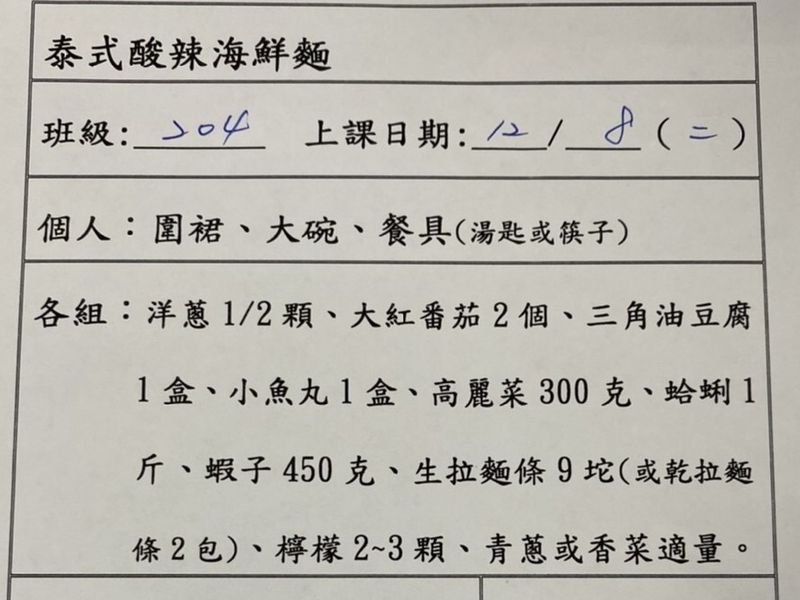 泰式酸辣海鮮麵
班級:204 上課日期:12/8(二)
個人：圍裙、大碗、餐具(湯匙或筷子)
各組：洋蔥1/2顆、大紅番茄2個、三角油豆腐
1盒、小魚丸1盒、高麗菜300克、蛤蜊1
斤、蝦子450克、生拉麵條9坨(或乾拉麵
條2包)、檸檬2~3顆、青蔥或香菜適量。